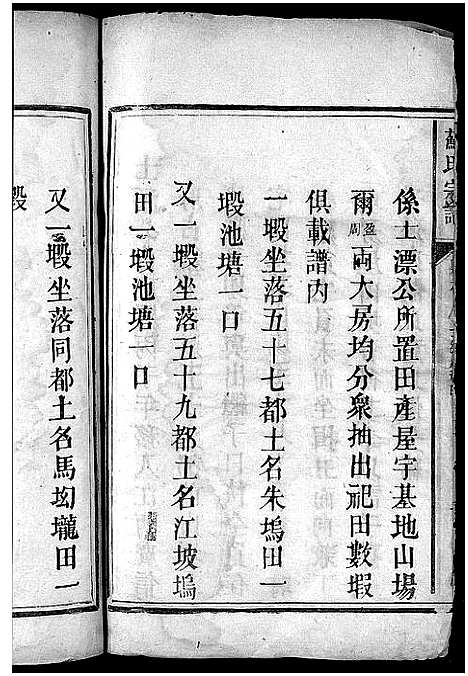 蘇氏宗譜
係士漂公所置田產屋宇基地山場
爾盈周兩大房均分衆抽出祀田數塅
俱載譜內
一塅坐落五十七都土名朱塢田一
塅池塘一口
又一塅坐落五十九都土名江坡塢
田一塅池塘一口
又一塅坐落同都土名馬㘭壠田一
塅